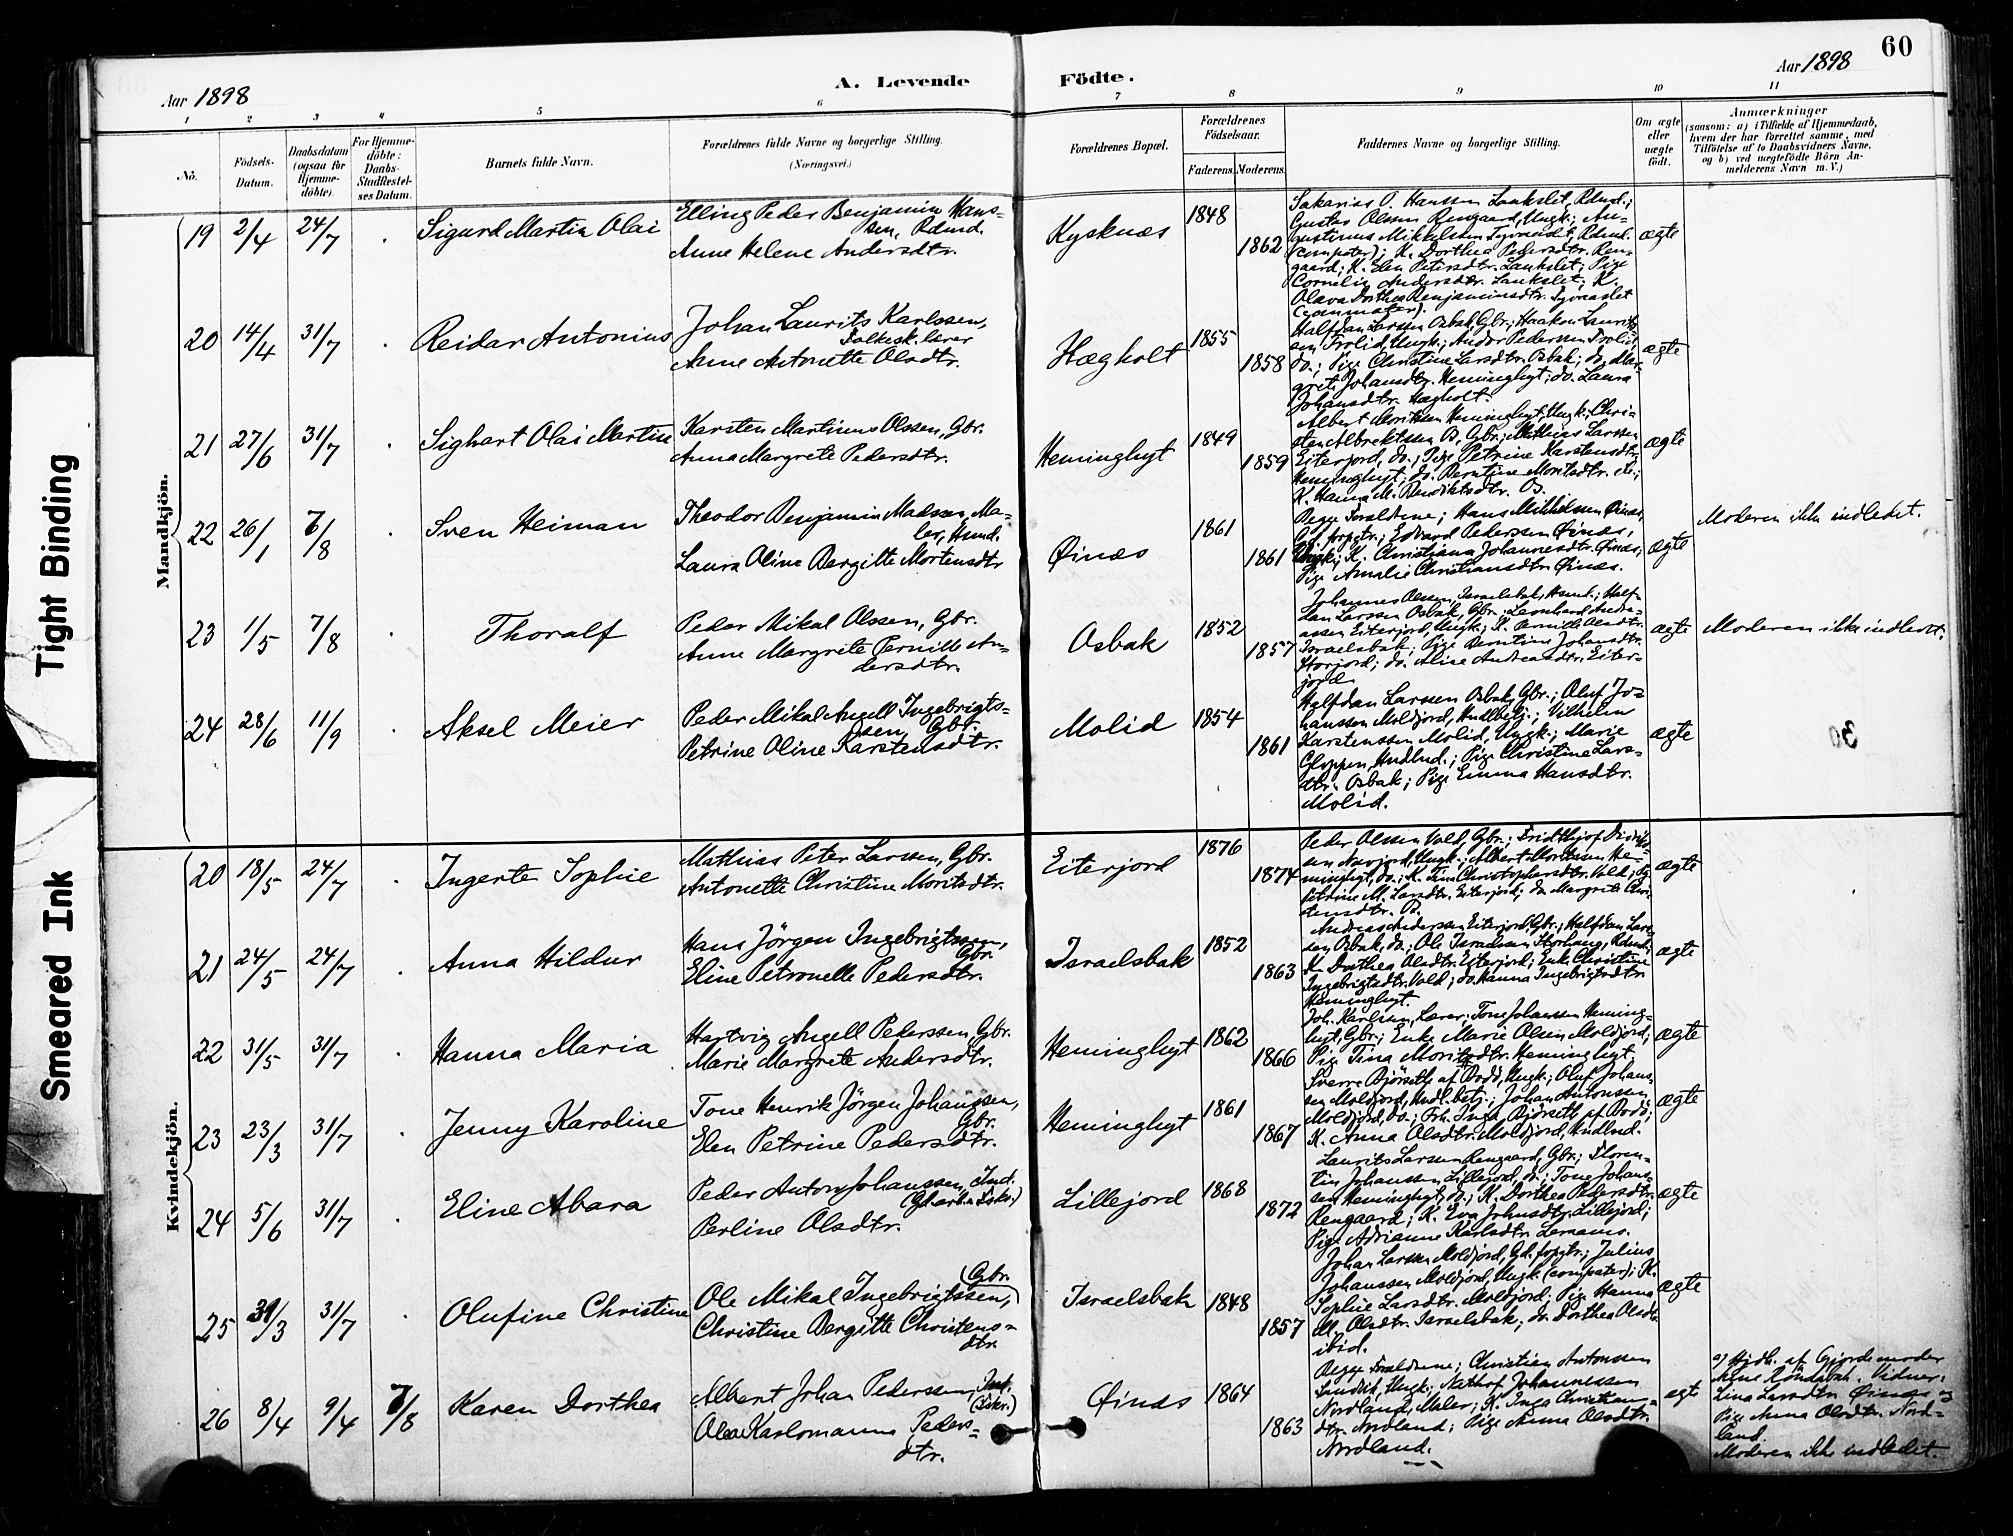 60
Aar 1898
A. Levende
Födte.
Aar 1898
1 2 3 4 5 6 7 8 9 10 11
No.
Födsels-
Datum.
Daabsdatum
(ogsaa for
Hjemme-
döbte).
For Hjemme-
döbte:
Daabs-
Stadfæstel-
ses Datum.
Barnets fulde Navn.
Forældrenes fulde Navne og borgerlige Stilling.
(Næringsvei.)
Forældrenes Bopæl.
Forældrenes
Födselsaar.
Faderens. Moderens.
Faddernes Navne og borgerlige Stilling.
Om ægte
eller
uægte
födt.
Anmærkninger
(saasom: a) i Tilfælde af Hjemmedaab,
hvem der har forrettet samme, med
Tilföielse af to Daabsvidners Navne,
og b) ved uægtefödte Börn An-
melderens Navn m. V.)
Tight Binding
Smeared Ink
Mandkjön.
19 2/4 24/7 Sigurd Martin Olai
Elling Peder Benjamin Hans-
sen, Rdmd.
Anne Helene Andersdtr.
Kysknæs 1848 1862
Sakarias O. Hanssen Laakslet, Rdmd.;
Gustav Olsen Rengaard, Ungk.; Au-
gustinus Mikkelsen
(compater); K. Dorthea Pedersdtr. Ren-
gaard; K. Elen Petersdtr. Laakslet; Pige
Cornelia Andersdtr. Laakslet; K.
Olava Dorthea Benjaminsdtr.
(commater).
ægte
20 14/4 31/7 Reidar Antonius
Johan Laurits Karlssen,
Folkesk.lærer
Anne Antonette Olsdtr.
Hægholt 1855 1858
Halfdan Larssen Osbak, Gbr.; Haakon Laurit-
sen Trolid, Ungk.; Andor Pederssen Trolid,
do.; Pige Christine Larsdtr. Osbak; do. Mar-
grete Johansdtr. Heminghyt; do. Laura
Johansdtr. Hægholt.
ægte
21 27/6 31/7 Sighart Olai Martin
Karsten Martinus Olssen, Gbr.
Anna Margrete Pedersdtr.
Heminghyt 1849 1859
Albert Moritssen Heminghyt, Ungk.; Chri-
sten Albrektssen Os, Gbr.; Mathias Larssen
Eiterjord, do.; Pige Petrine Karstensdtr.
Heminghyt; do. Berntine Moritsdtr. ib.;
K. Hanna M. Benediktsdtr. Os.
ægte
22 26/1 7/8 Sven Heiman
Theodor Benjamin Madssen, Ma-
ler, Hmd.
Laura Oline Bergitte Mortensdtr
Øinæs 1861 1861
Begge Forældrene; Hans Mikkelsen Øinæs,
Gd.forpgtr.; Edvard Pederssen Øinæs,
Ungk.; K. Christiana Johannesdtr. Øinæs;
Pige Amalie Christiansdtr. Øinæs.
ægte
Moderen ikke indledet.
23 1/5 7/8 Thoralf
Peder Mikal Olssen, Gbr.
Anne Margrete Pernille An-
dersdtr.
Osbak 1852 1857
Johannes Olssen, Israelsbak, Hsmd.; Half-
dan Larssen Osbak, Gbr.; Leonhard Andre-
assen Eiterjord, Ungk.; K. Pernille Olsdtr.
Israelsbak; Pige Berntine Johansdtr.
Storjord; do. Alise Andreasdtr. Eiter-
jord.
ægte
Moderen ikke indledet.
24 28/6 11/9 Aksel Meier
Peder Mikal Angell Ingebrigts-
sen, Gbr.
Petrine Oline Karstensdtr.
Molid 1854 1861
Halfdan Larssen Osbak, Gbr.; Oluf Jo-
hanssen Moldjord, Hndlbetj.; Vilhelm
Karstenssen Molid, Ungk.; Marie
Gloppen, Hndlnd.; Pige Christine Lars-
dtr. Osbak; Pige Emma Hansdtr.
Molid.
ægte
Kvindekjön.
20 18/5 24/7 Ingerte Sophie
Mathias Peter Larssen, Gbr.
Antonette Christine Moritsdtr.
Eiterjord 1876 1874
Peder Olssen Vold, Gbr.; Fridthjof Didrik-
sen Ungk.; Albert Moritssen He-
minghyt, do.; K. Tina Christophersdtr. Vold;
Petrine M. Larsdtr. Eiterjord; do. Margrete Chri-
stensdtr. Os.
ægte
21 24/5 24/7 Anna Hildur
Hans Jörgen Ingebrigtssen,
Gbr.
Eline Petronelle Pedersdtr.
Israelsbak 1852 1863
Andreas Anderssen Eiterjord, Gbr.; Halfdan Lars-
sen Osbak, do.; Ole Israelssen Storhaug, Rdmd.;
K. Dorthea Olsdtr. Eiterjord; Enk. Christine
Ingebrigtsdtr. Vold; do. Hanna Ingebrigtsdtr.
Heminghyt.
ægte
22 31/5 31/7 Hanna Maria
Hartvig Angell Pederssen, Gbr.
Marie Margrete Andersdtr.
Heminghyt 1862 1866
Joh. Karlssen, Lærer; Tone Johanssen Heming-
hyt, Gbr.; Enke Marie Olsen Moldjord;
Pige Tina Moritsdtr. Heminghyt.
ægte
23 23/3 31/7 Jenny Karoline
Tone Henrik Jörgen Johanssen,
Gbr.
Elen Petrine Pedersdtr.
Heminghyt 1861 1867
Sverre Bjørseth af Bodö, Ungk.; Oluf Johans-
sen Moldjord, Hndl.betj.; Johan Antonsen
Moldjord, do.; Frk. Inga Bjørseth af Bodö;
K. Anna Olsdtr. Moldjord, Hndlnd.
ægte
24 5/6 31/7 Eline Abara
Peder Anton Johanssen, Ind.
(Gdarb. Fisker)
Perline Olsdtr.
Lillejord 1868 1872
Laurits Larssen Rengaard, Gbr.; Floren-
tin Johanssen Lillejord, do.; Tone Johans-
sen Heminghyt, do.; K. Dorthea Pedersdtr.
Rengaard; K. Eva Johnsdtr. Lillejord;
Pige Adrianne Karlsdtr.
ægte
25 31/3 31/7 Olufine Christine
Ole Mikal Ingebrigtssen,
(Gbr.
Christine Bergitte Christens-
dtr.
Israelsbak 1848 1857
Johan Larssen Moldjord, Gd.forpgtr.; Julius
Johanssen Moldjord, Ungk. (compater); K.
Sophie Larsdtr. Moldjord; Pige Hanna
M. Olsdtr. Israelsbak; do. Dorthea Olsdtr.
ibid.
ægte
26 8/4 9/4 7/8 Karen Dorthea
Albert Johan Pederssen, Ind.
(Fiskr.)
Olea Karlomanna Peders-
dtr.
Øinæs 1864 1863
Begge Forældrene; Christian Antonssen
Ungk.; Johannessen
Nordland, Maler; K. Inga Christians-
dtr. Nordland; Pige Anna Olsdtr.
Nordland.
ægte
a) Hjdb. af Gjordemoder
Vidner:
Lina Larsdtr. Øinæs og
Pige Anna Olsdtr. Nord-
land.
Moderen ikke indledet.